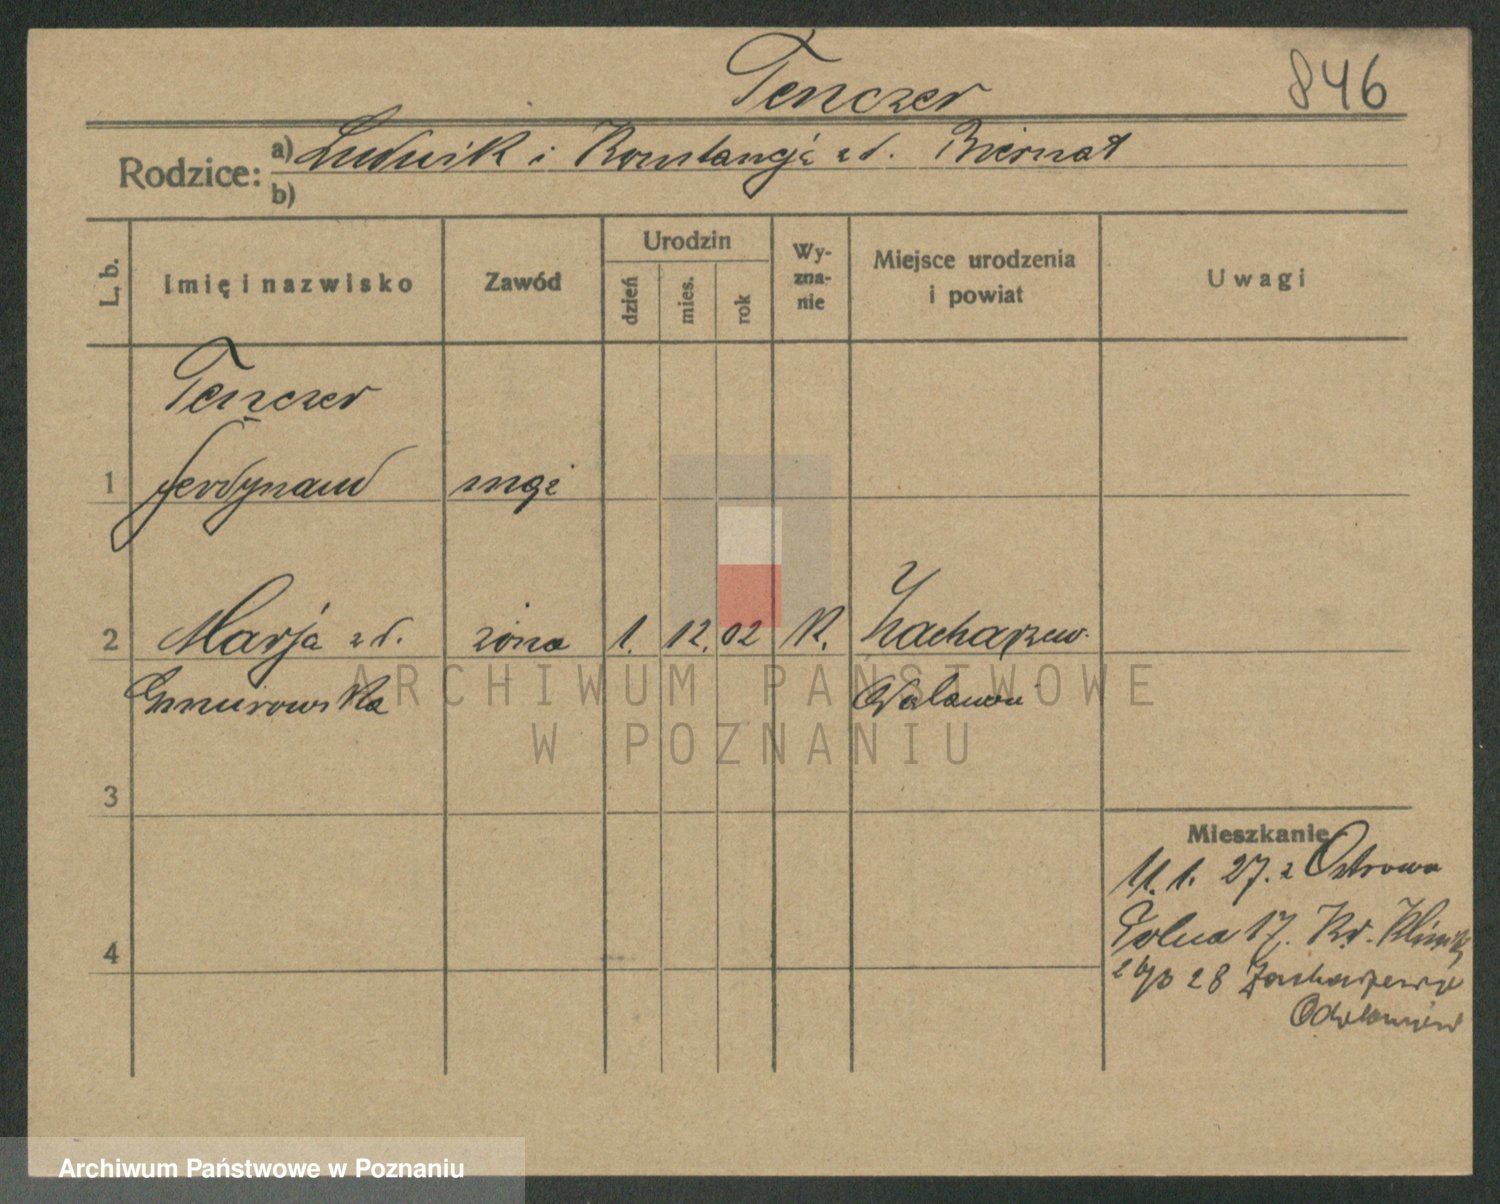 Tenczer 846
Rodzice: a) Ludwik i Konstancja zd. Biernat
b)
L. b. Imię i nazwisko Zawód Urodzin dzień mies. rok Wyznanie Miejsce urodzenia i powiat Uwagi
Tenczer
1 Ferdynand mąż
2 Marja zd. żona 1. 12. 02 K. Zacharzew.
Gmurowska Odolanów
ARCHIWUM PAŃSTWOWE
W POZNANIU
3
Mieszkanie
11. 1. 27. z Ostrowa
Polna 17.
4
28 Zacharzew
Odolanów
Archiwum Państwowe w Poznaniu